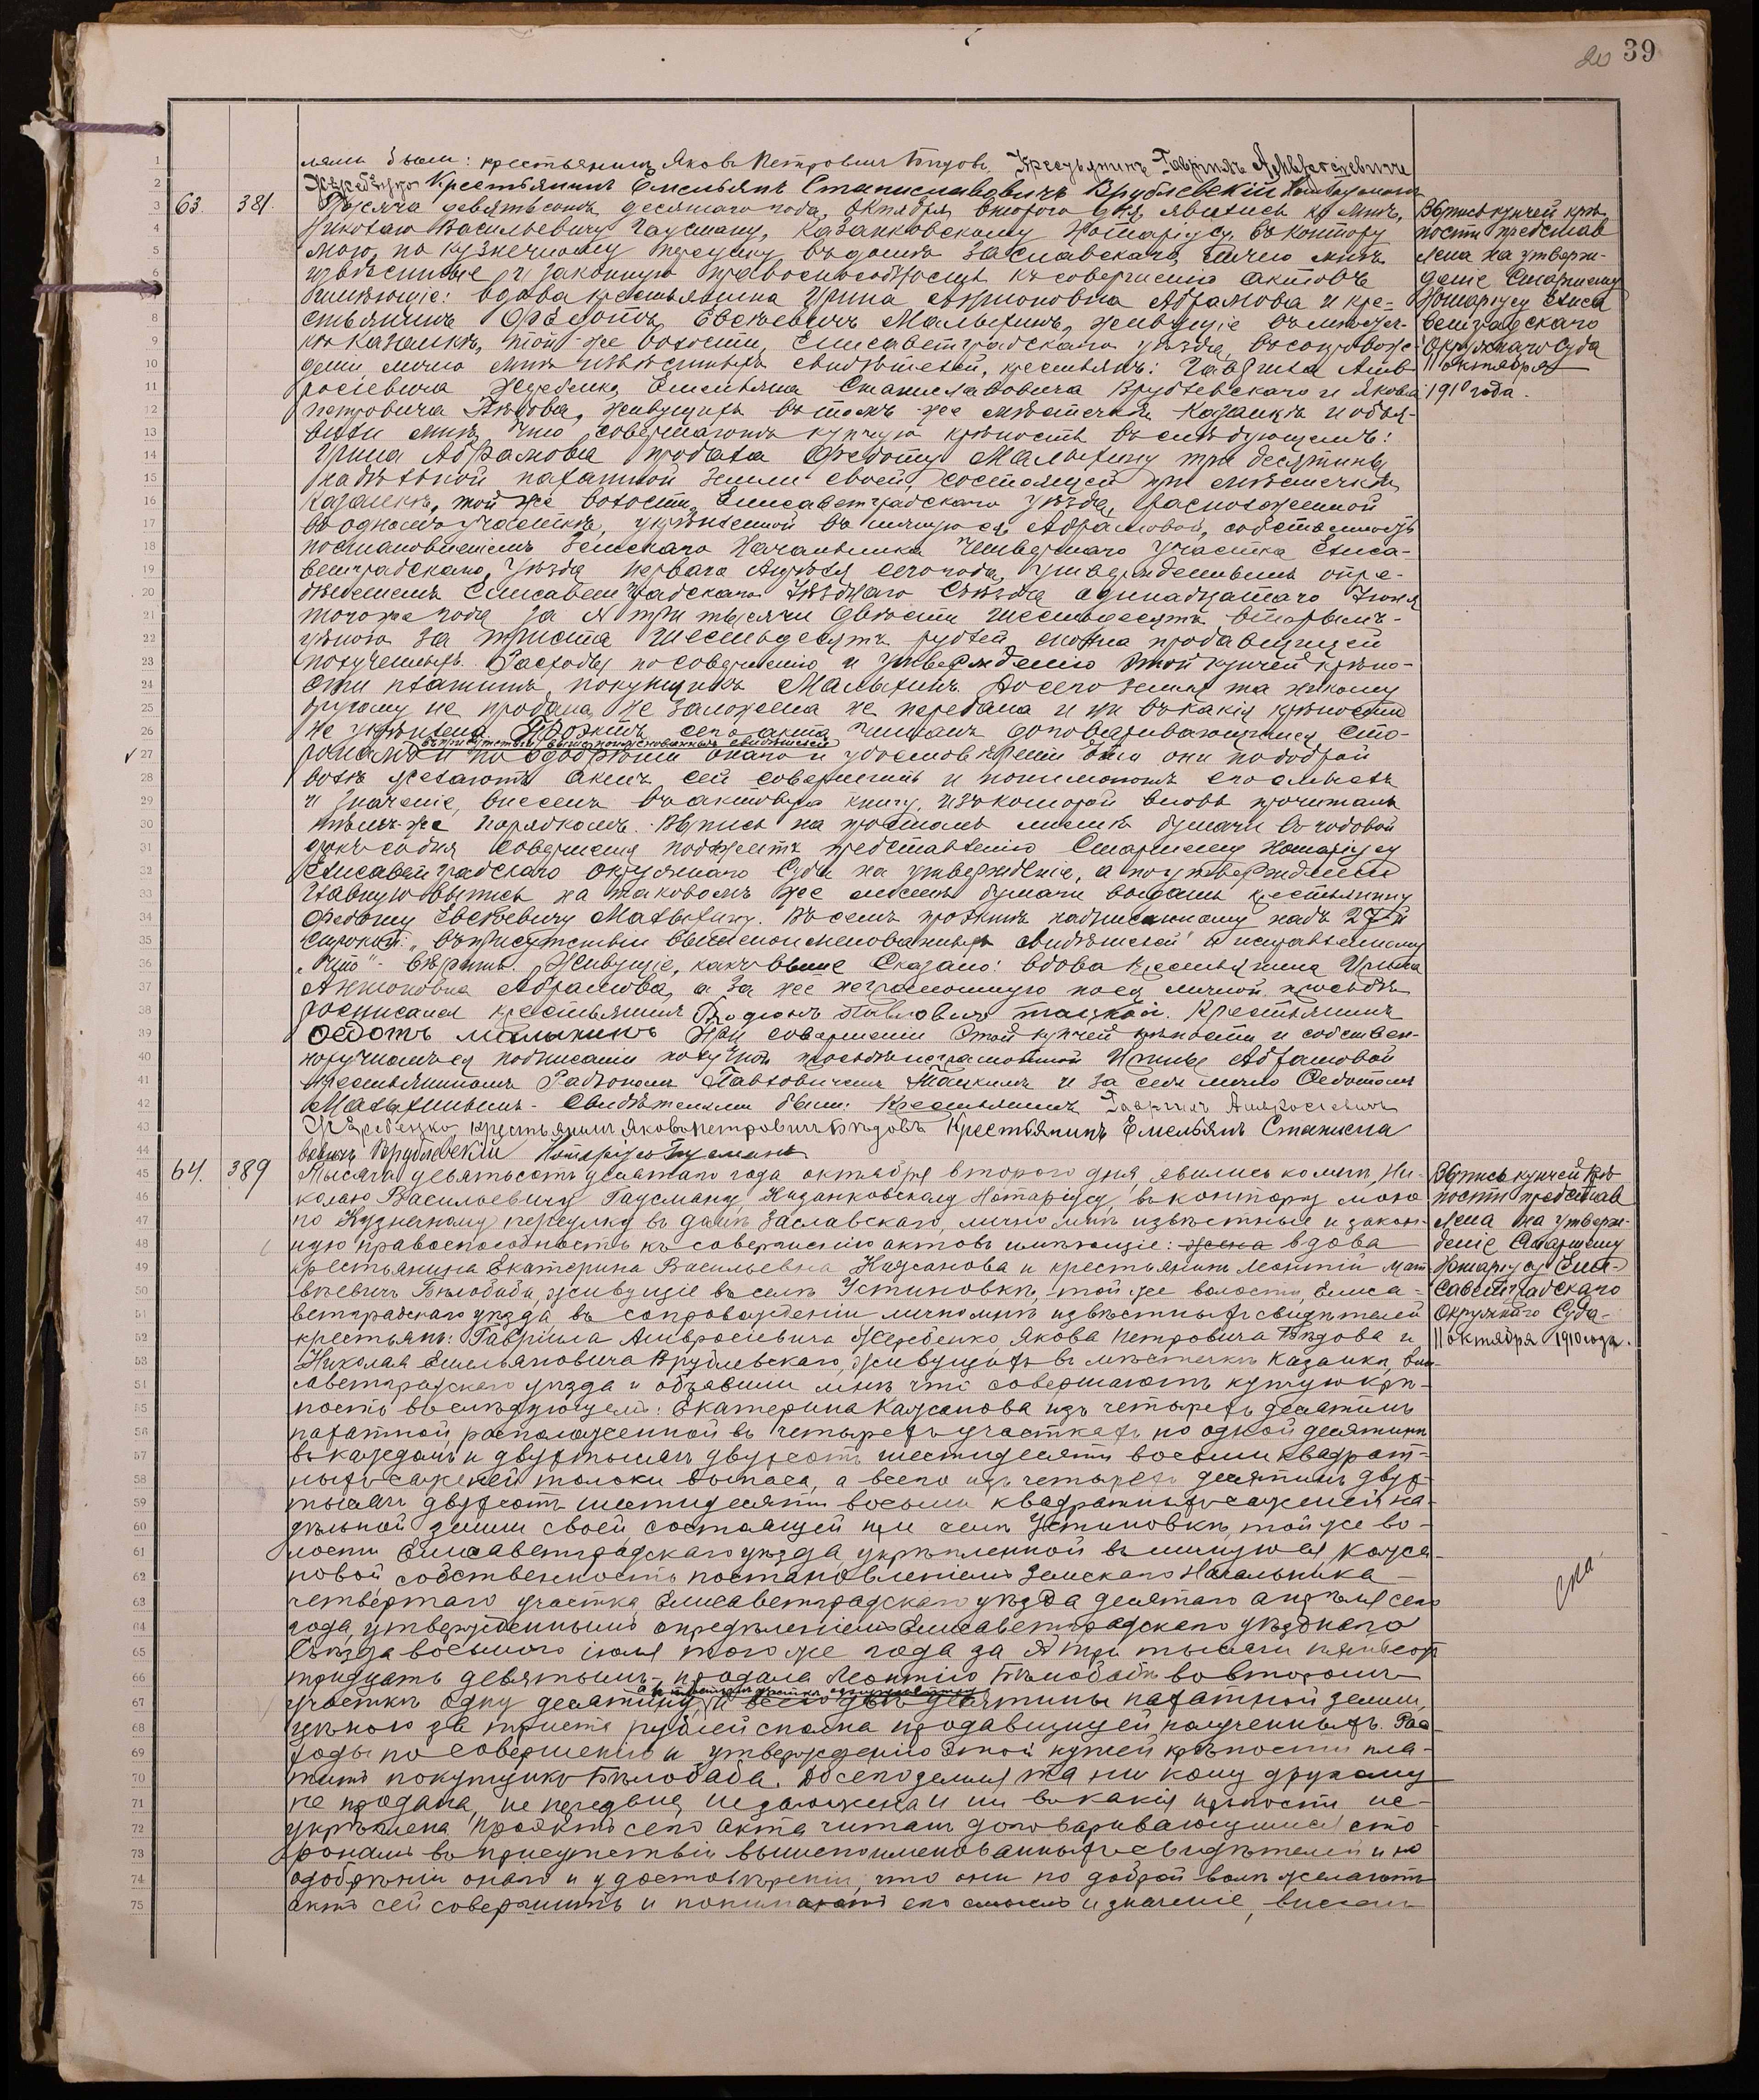 20 39
лями были: крестьянинъ Яковъ Петровичъ Бѣдовъ. Крестьянинъ Гавріилъ Амвросіевичъ
Жеребенко Крестьянинъ Емельянъ Станиславовичъ Врублевскій
63. 381. Тысяча девятьсотъ десятаго года, Октября второго дня, явились ко мнѣ,
Николаю Васильевичу Гаусману, Казанковскому Нотаріусу, въ контору
мою, по кузнечному переулку въ домѣ Заславскаго, лично мнѣ
извѣстные и законную правоспособность къ совершенію актовъ
имѣющіе: вдова крестьянина Ирина Антоновна Абрамова и кре-
стьянинъ Ѳедотъ Евсѣевичъ Малыхинъ, живущіе въ мѣстеч-
кѣ Казанкѣ, той-же волости, Елисаветградскаго уѣзда, въ сопровож-
деніи лично мнѣ извѣстныхъ свидѣтелей, крестьянъ: Гавріила Амв-
росіевича Жеребенко, Емельяна Станиславовича Врублевскаго и Якова
Петровича Бѣдова, живущихъ въ томъ-же мѣстечкѣ Казанкѣ и объя-
вили мнѣ, что совершаютъ купчую крѣпость въ слѣдующемъ:
Ирина Абрамова продала Ѳедоту Малыхину три десятины
надѣльной пахатной земли своей, состоящей при мѣстечкѣ
Казанкѣ, той же волости, Елисаветградскаго уѣзда, расположенной
въ одномъ участкѣ, укрѣпленной въ личную ея, Абрамовой, собственность
постановленіемъ Земскаго Начальника Четвертаго участка Елиса-
ветградскаго уѣзда перваго Апрѣля сего года, утвержденнымъ опре-
дѣленіемъ Елисаветградскаго Уѣзднаго Съѣзда одинадцатаго Іюня
того же года за № три тысячи двѣсти шестьдесятъ вторымъ-
цѣною за триста шестьдесятъ рублей, сполна продавщицей
полученныхъ. Расходы по совершенію и утвержденію этой купчей крѣпо-
сти платитъ покупщикъ Малыхинъ. До сего земля та никому
другому не продана, не заложена не передана и ни въ какія крѣпости
не укрѣплена. Проэктъ сего акта читанъ договаривающимся сто-
въ присутствіи вышепоименованныхъ свидѣтелей
ронамъ и по одобреніи онаго и удостовѣреніи что они по доброй
волѣ желаютъ актъ сей совершить и понимаютъ его смыслъ
и значеніе, внесенъ въ актовую книгу, изъ которой вновь прочитанъ
тѣмъ-же порядкомъ. Выпись на простомъ листѣ бумаги въ годовой
срокъ со дня совершенія подлежитъ представленію Старшему Нотаріусу
Елисаветградскаго Окружнаго Суда на утвержденіе, а по утвержденіи
главную выпись на таковомъ же листѣ бумаги выдать крестьянину
Ѳедоту Евсѣевичу Малыхину. Въ семъ проэктѣ надписанному надъ 27й
строкой: "въ присутствіи вышепоименованныхъ свидѣтелей" и исправленному
"что" - вѣрить. Живущіе, какъ выше сказано: вдова крестьянина Ирина
Антоновна Абрамова, а за нее неграмотную по ея личной просьбѣ
росписался крестьянинъ Родіонъ Павловичъ Тацкой. Крестьянинъ
Ѳедотъ Малыхинъ При совершеніи этой купчей крѣпости и собствен-
норучномъ ея подписаніи по личной просьбѣ неграмотной Ирины Абрамовой
крестьяниномъ Родіономъ Павловичемъ Тацкимъ и за себя лично Ѳедотомъ
Малыхинымъ - свидѣтелями были: Крестьянинъ Гавріилъ Амвросіевичъ
Жеребенко, крестьянинъ Яковъ Петровичъ Бѣдовъ Крестьянинъ Емельянъ Станисла
вовичъ Врублевскій Нотаріусъ Гаусманъ
Выпись купчей крѣ-
пости представ
лена на утверж-
деніе Старшему
Нотаріусу Елиса
ветградскаго
Окружнаго Суда
11 Октября
1910 года.
64. 389 Тысяча девятьсотъ десятаго года октября второго дня, явились ко мнѣ, Ни-
колаю Васильевичу Гаусману, Казанковскому Нотаріусу, въ контору мою
по Кузнечному переулку въ домѣ Заславскаго, лично мнѣ извѣстные и закон-
ную правоспособность къ совершенію актовъ имѣющіе: жена вдова
крестьянина Екатерина Васильевна Кажанова и крестьянинъ Леонтій Мат-
вѣевичъ Бѣлобаба, живущіе въ селѣ Устиновкѣ, той же волости, Елиса-
ветградскаго уѣзда въ сопровожденіи лично мнѣ извѣстныхъ свидѣтелей
крестьянъ: Гавріила Амвросіевича Жеребенко, Якова Петровича Бѣдова и
Николая Емельяновича Врублевскаго, живущихъ въ мѣстечкѣ Казанкѣ, Ели-
саветградскаго уѣзда и объявили мнѣ, что совершаютъ купчую крѣ-
пость въ слѣдующемъ: Екатерина Кажанова изъ четырехъ десятинъ
пахатной, расположенной въ четырехъ участкахъ по одной десятинѣ
въ каждомъ и двухтысячъ двухсотъ шестидесяти восьми квадрат-
ныхъ саженей толоки выпаса, а всего изъ четырехъ десятинъ двух-
тысячъ двухсотъ шестидесяти восьми квадратныхъ саженей на-
дѣльной земли своей состоящей при селѣ Устиновкѣ, той же во-
лости Елисаветградскаго уѣзда, укрѣпленной въ личную ея, Кажа-
новой, собственность постановленіемъ Земскаго Начальника
четвертаго участка Елисаветградскаго уѣзда десятаго апрѣля сего
года, утвержденнымъ опредѣленіемъ Елисаветградскаго уѣзднаго
Съѣзда восьмого іюля того же года за № три тысячи пятьсотъ
тридцать девятымъ - продала Леонтію Бѣлобабѣ во второмъ
участкѣ одну десятину, и всего двѣ десятины пахатной земли,
цѣною за триста рублей сполна продавщицей полученныхъ. Рас-
ходы по совершенію и утвержденію этой купчей крѣпости пла-
титъ покупщикъ Бѣлобаба. До сего земля та ни кому другому
не продана, не передана, не заложена и ни въ какія крѣпости не
укрѣплена Проэктъ сего акта читанъ договаривающимся сто
ронамъ въ присутствіи вышепоименованныхъ свидѣтелей и по
одобреніи онаго и удостовѣреніи, что они по доброй волѣ желаютъ
актъ сей совершить и понимаютъ его смыслъ и значеніе, внесенъ
Выпись купчей крѣ
пости представ
лена на утверж-
деніе Старшему
Нотаріусу Ели-
саветградскаго
Окружнаго Суда -
11 октября 1910 года.